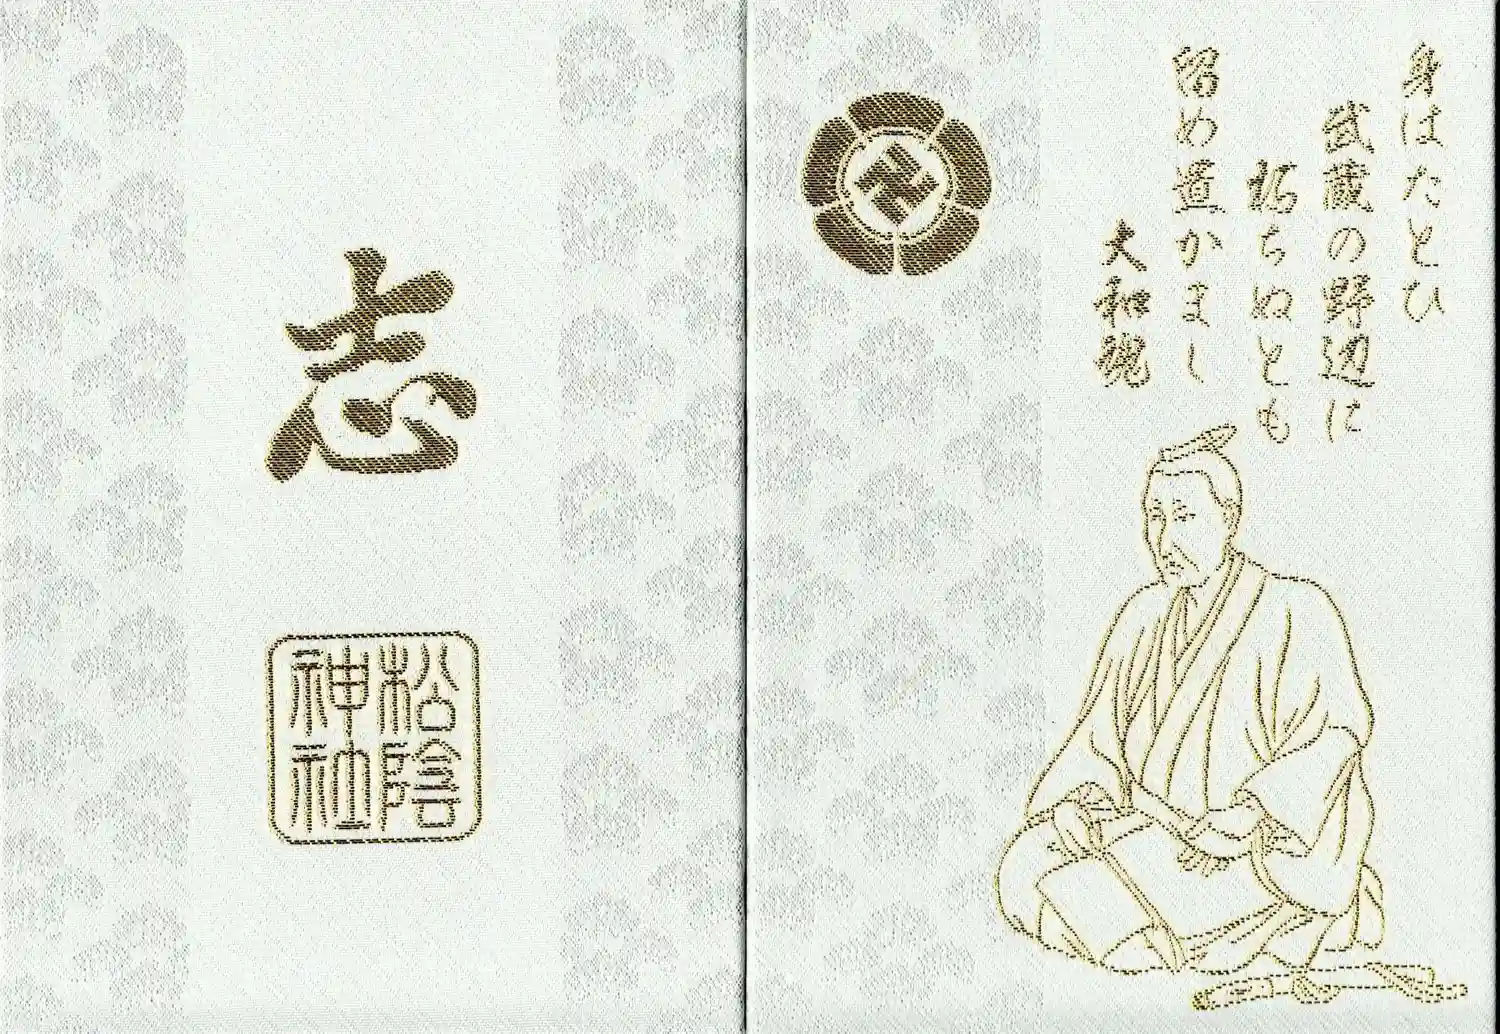 身はたとひ
武蔵の野辺に
朽ちぬとも
留め置かまし
大和魂
志
松陰
神社